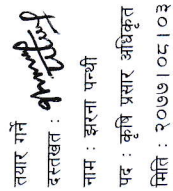 तयार गर्ने
दस्तखत :
नाम : झरना पन्थी
पद : कृषि प्रसार अधिकृत
मिति : २०७७।०८।०३